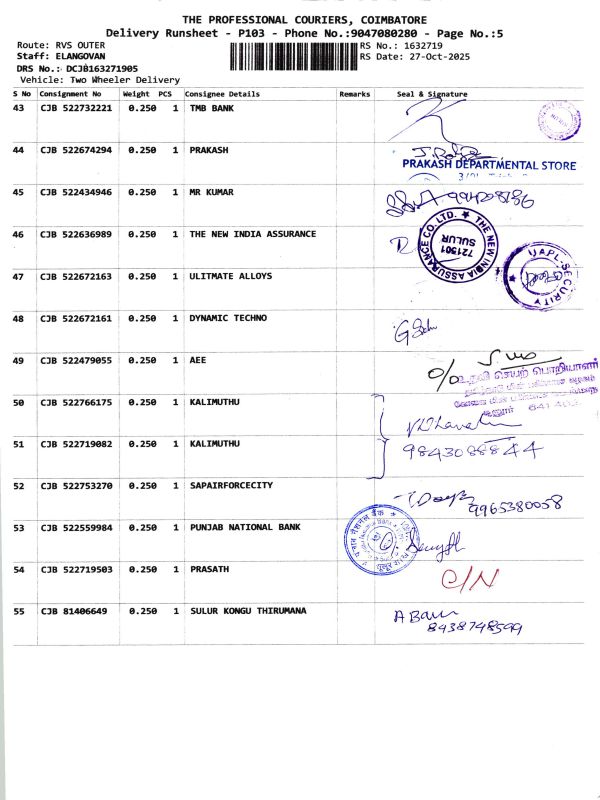 THE PROFESSIONAL COURIERS, COIMBATORE
Delivery Runsheet - P103 - Phone No.:9047080280 - Page No.:5
Route: RVS OUTER RS No.: 1632719
Staff: ELANGOVAN RS Date: 27-Oct-2025
DRS No.: DCJB163271905
Vehicle: Two Wheeler Delivery
S No Consignment No Weight PCS Consignee Details Remarks Seal & Signature
43 CJB 522732221 0.250 1 TMB BANK
44 CJB 522674294 0.250 1 PRAKASH
PRAKASH DEPARTMENTAL STORE
45 CJB 522434946 0.250 1 MR KUMAR
46 CJB 522636989 0.250 1 THE NEW INDIA ASSURANCE
THE NEW INDIA ASSURANCE CO. LTD.
721501
SULUR
47 CJB 522672163 0.250 1 ULITMATE ALLOYS
UAPL-SECURITY
48 CJB 522672161 0.250 1 DYNAMIC TECHNO
49 CJB 522479055 0.250 1 AEE
O/O
உதவி செயற் பொறியாளர்
641 402
50 CJB 522766175 0.250 1 KALIMUTHU
51 CJB 522719082 0.250 1 KALIMUTHU
9843088844
52 CJB 522753270 0.250 1 SAPAIRFORCECITY
9965380058
53 CJB 522559984 0.250 1 PUNJAB NATIONAL BANK
54 CJB 522719503 0.250 1 PRASATH
C/N
55 CJB 81406649 0.250 1 SULUR KONGU THIRUMANA
8438748599